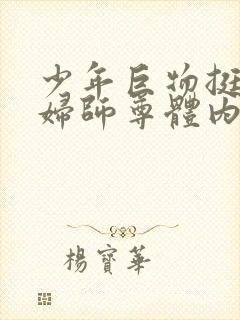 少年巨物挺
婦師尊體內
楊寶華